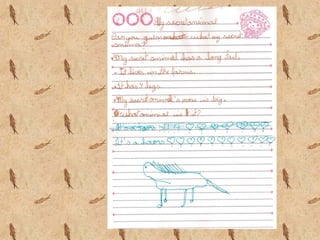 My secret animal
Can you guess what my secret
animal?
My secret animal has a long tail.
It lives in the farm.
It has 4 legs.
My secret animal's nose is big.
What animal is it?
It's a